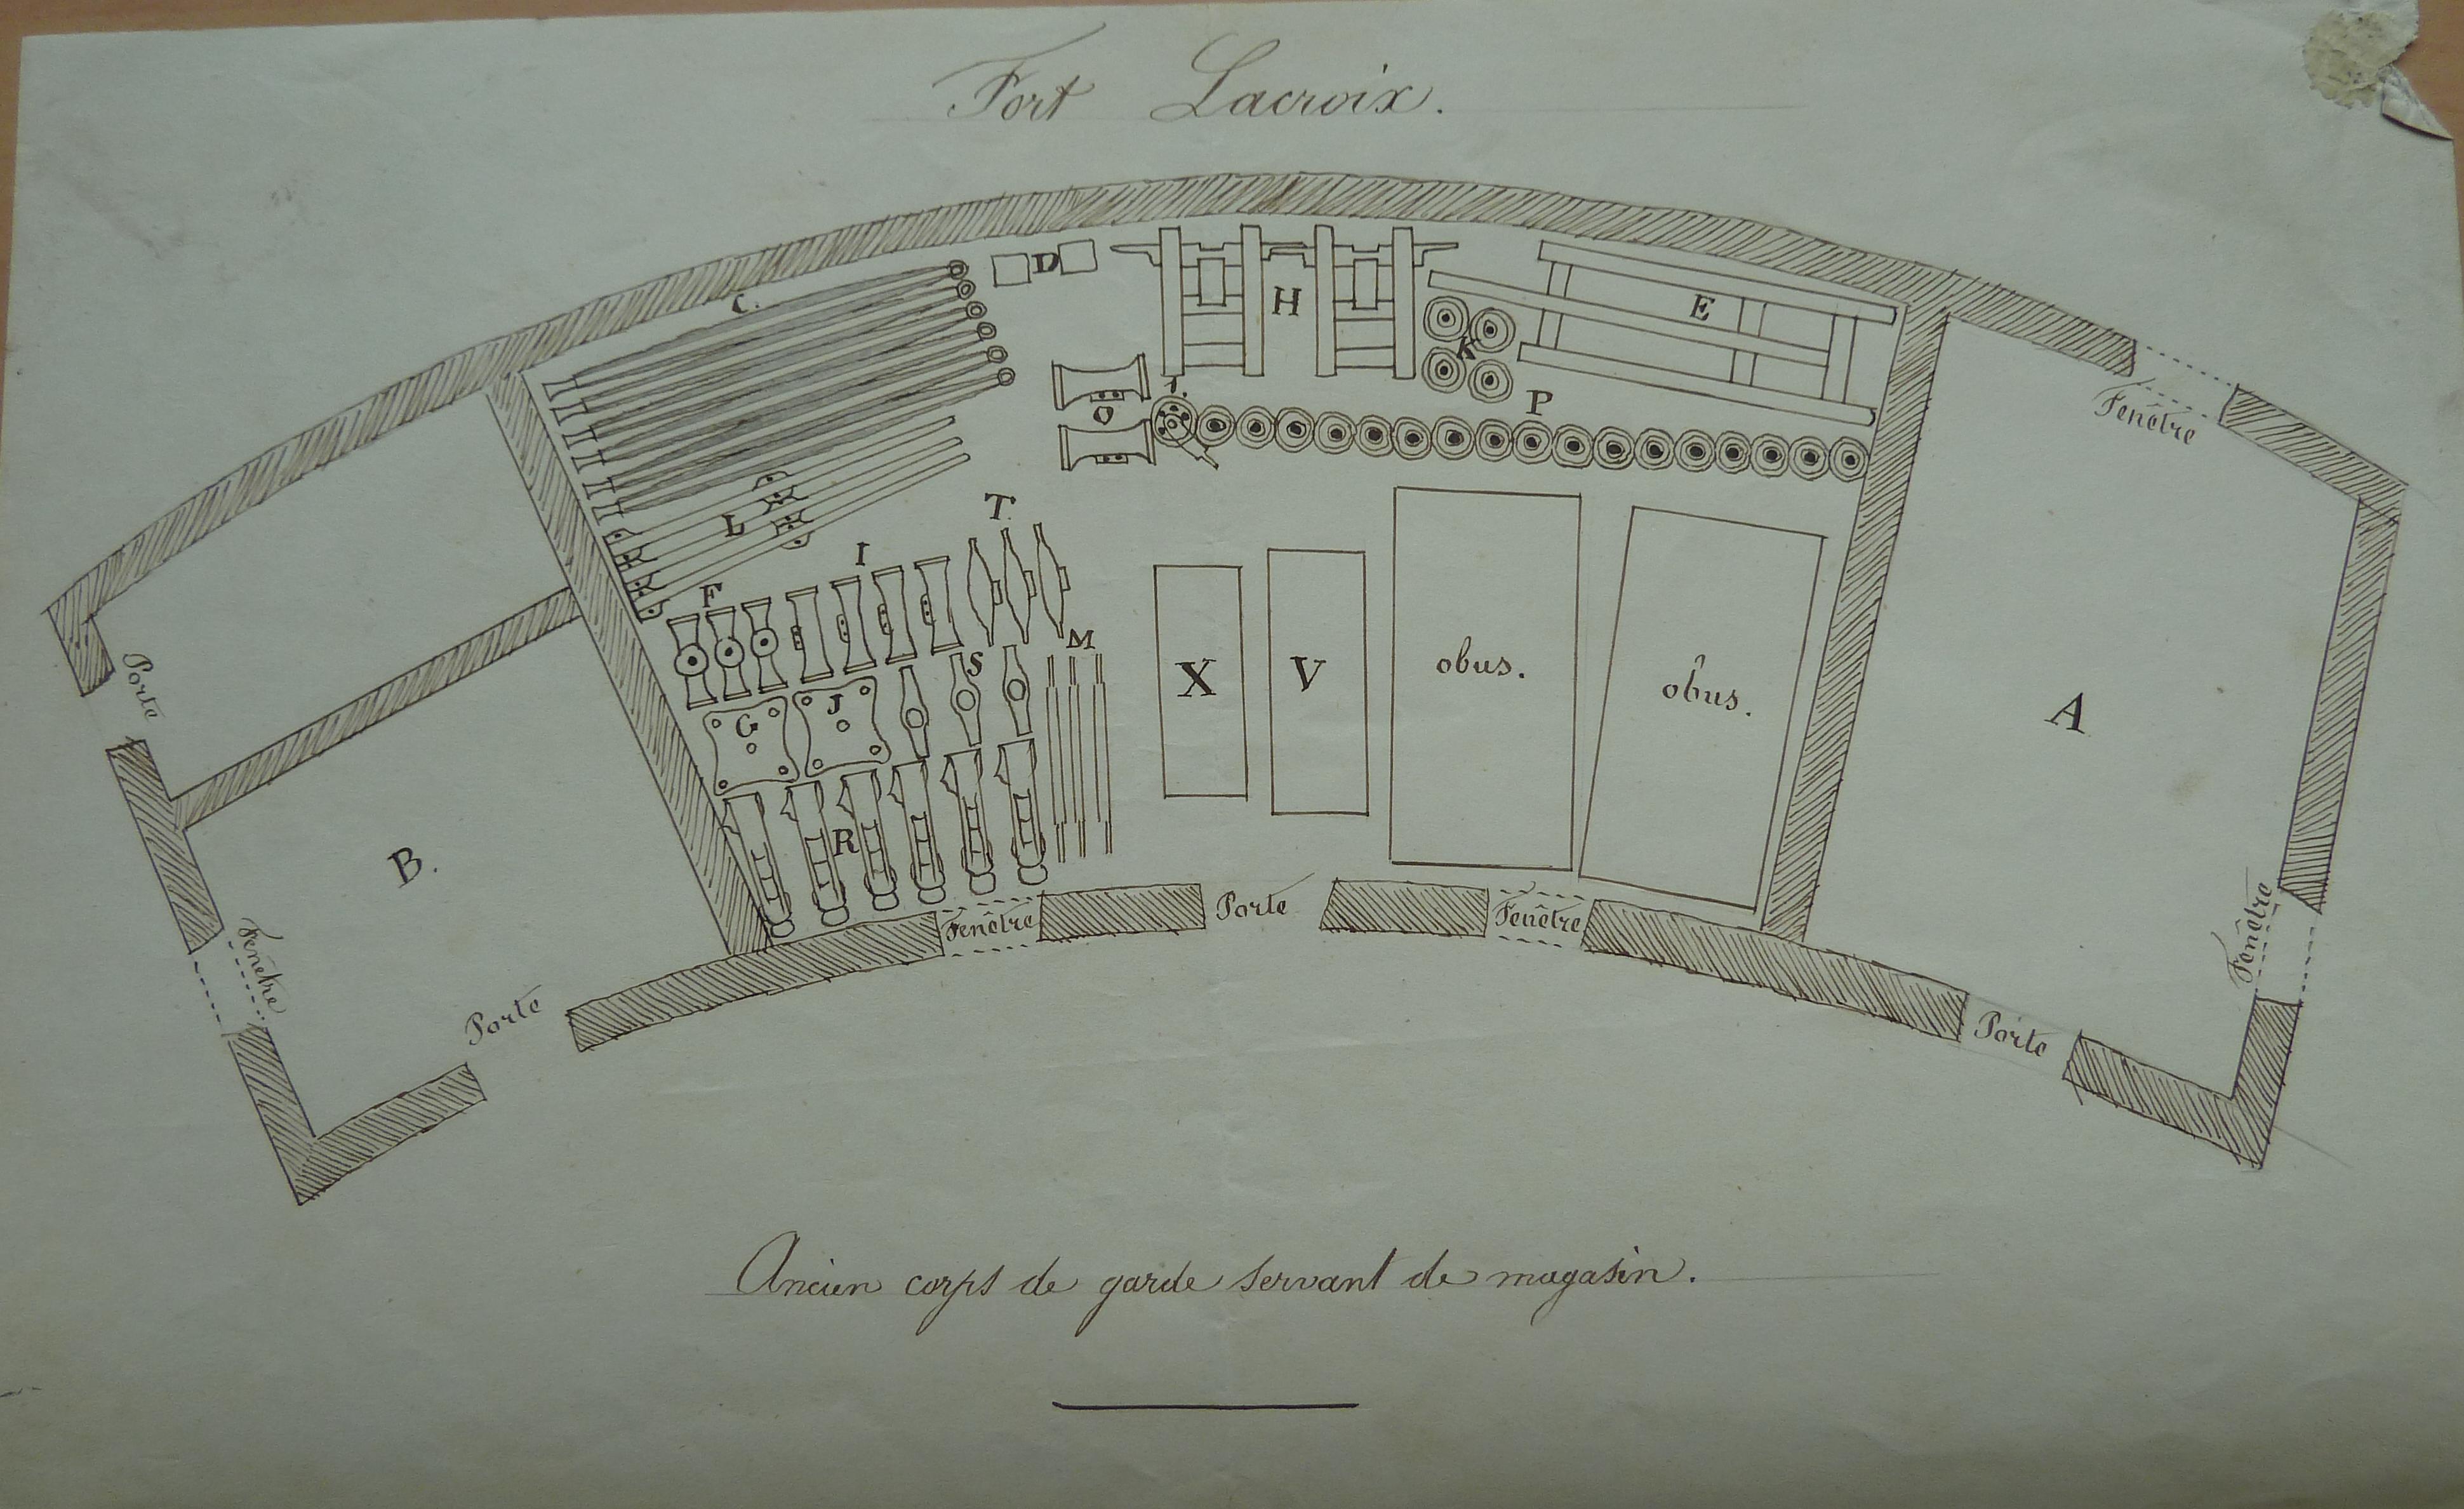 Fort Lacroix.
C.
D
H
E
K
P
1.
O
Fenêtre
L
T.
I
F
M
S
G
J
X
V
obus.
obus.
A
Porte
R
B.
Fenêtre
Fenêtre
Porte
Fenêtre
Fenêtre
Porte
Porte
Ancien corps de garde servant de magasin.